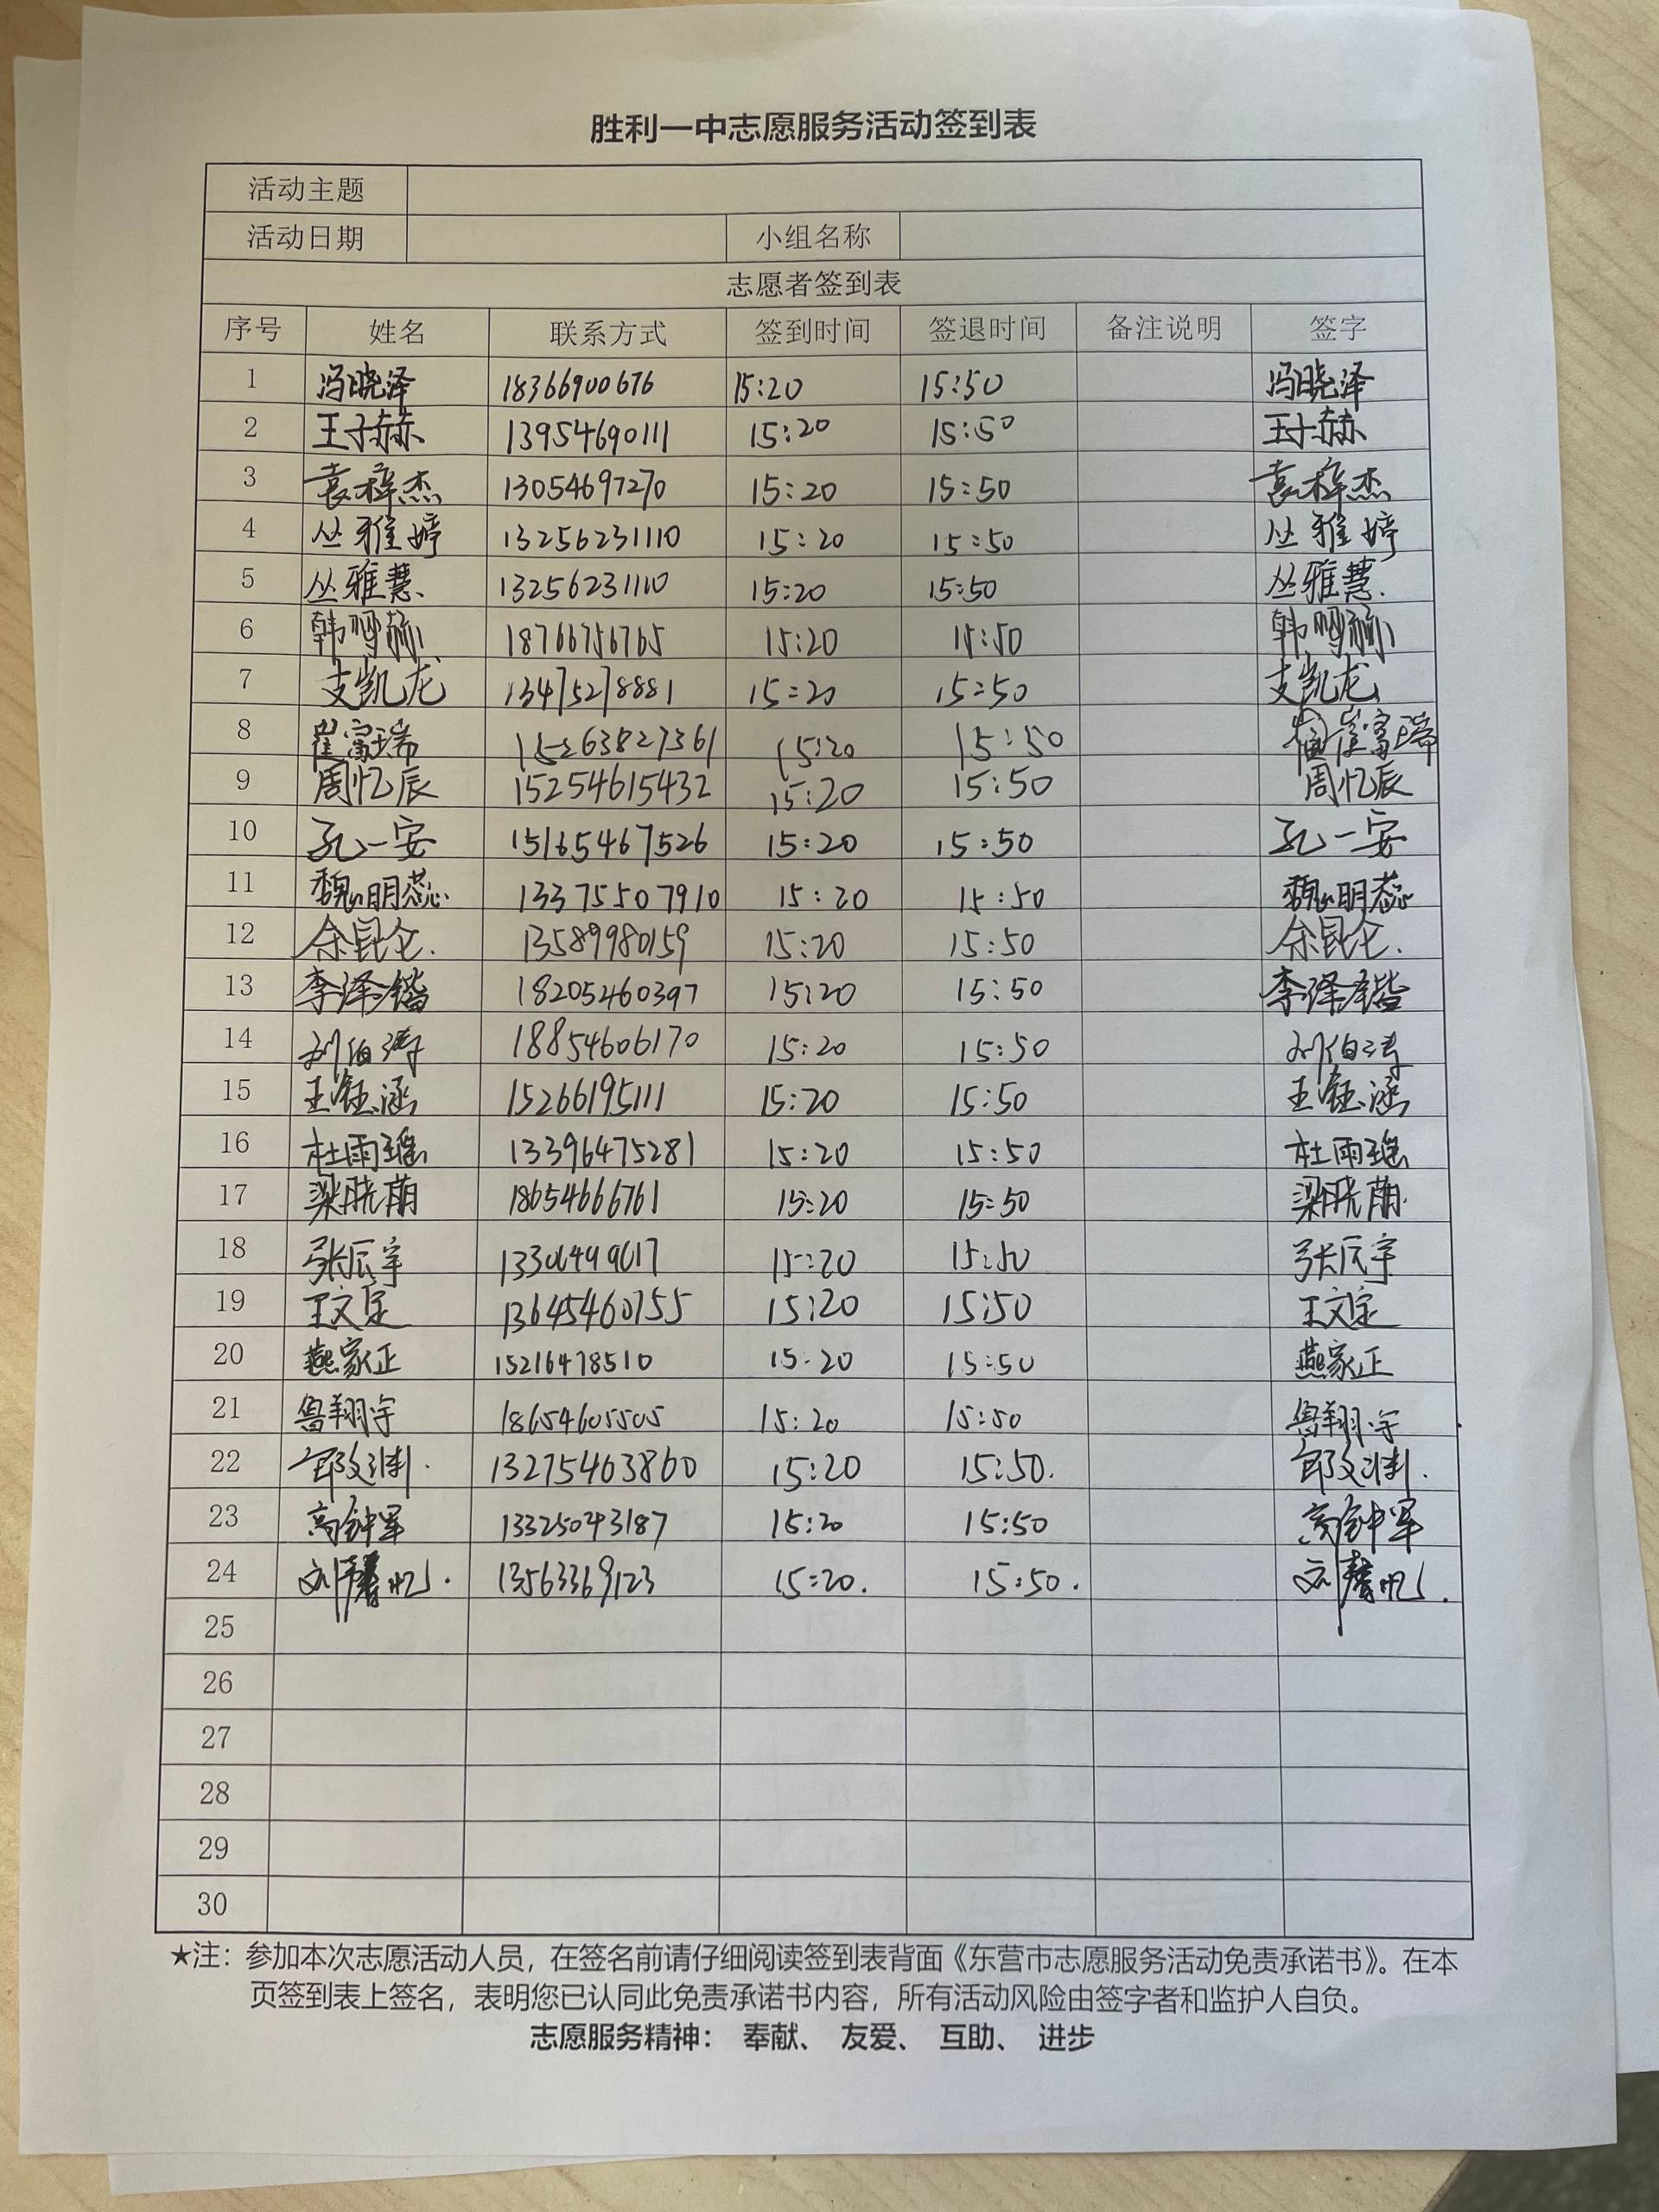 胜利一中志愿服务活动签到表
活动主题
活动日期 小组名称
志愿者签到表
序号 姓名 联系方式 签到时间 签退时间 备注说明 签字
1 冯晓泽 18366900676 15:20 15:50 冯晓泽
2 王子赫 13954690111 15:20 15:50 王子赫
3 袁梓杰 13054697270 15:20 15:50 袁梓杰
4 丛雅婷 13256231110 15:20 15:50 丛雅婷
5 丛雅慧 13256231110 15:20 15:50 丛雅慧
6 18766756765 15:20 15:50
7 支凯龙 13475278881 15:20 15:50 支凯龙
8 崔富瑞 15263827361 15:20 15:50 崔富瑞
9 周忆辰 15254615432 15:20 15:50 周忆辰
10 孔一安 15165467526 15:20 15:50 孔一安
11 魏明蕊 13375507910 15:20 15:50 魏明蕊
12 余昆仑. 13589980159 15:20 15:50 余昆仑.
13 李泽锴 18205460397 15:20 15:50 李泽锴
14 刘伯涛 18854606170 15:20 15:50 刘伯涛
15 王钰涵 15266195111 15:20 15:50 王钰涵
16 杜雨瑶 13396475281 15:20 15:50 杜雨瑶
17 梁晓萌 18654666761 15:20 15:50 梁晓萌
18 张辰宇 15:20 15:50 张辰宇
19 王文定 13645460755 15:20 15:50 王文定
20 燕家正 15216478510 15:20 15:50 燕家正
21 鲁翔宇 18654605505 15:20 15:50 鲁翔宇
22 13275463860 15:20 15:50.
23 高钟军 13325043187 15:20 15:50 高钟军
24 刘馨忆. 13563369123 15:20. 15:50. 刘馨忆.
25
26
27
28
29
30
★注：参加本次志愿活动人员，在签名前请仔细阅读签到表背面《东营市志愿服务活动免责承诺书》。在本
页签到表上签名，表明您已认同此免责承诺书内容，所有活动风险由签字者和监护人自负。
志愿服务精神： 奉献、 友爱、 互助、 进步